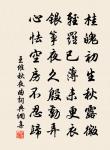 桂魄初生秋露微
輕羅已薄未更衣
銀箏夜久殷勤弄
心怯空房不忍歸
王維秋夜曲詞典網書